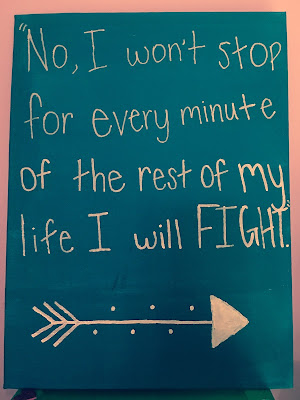 "No, I won't stop
for every minute
of the rest of my
life I will FIGHT."